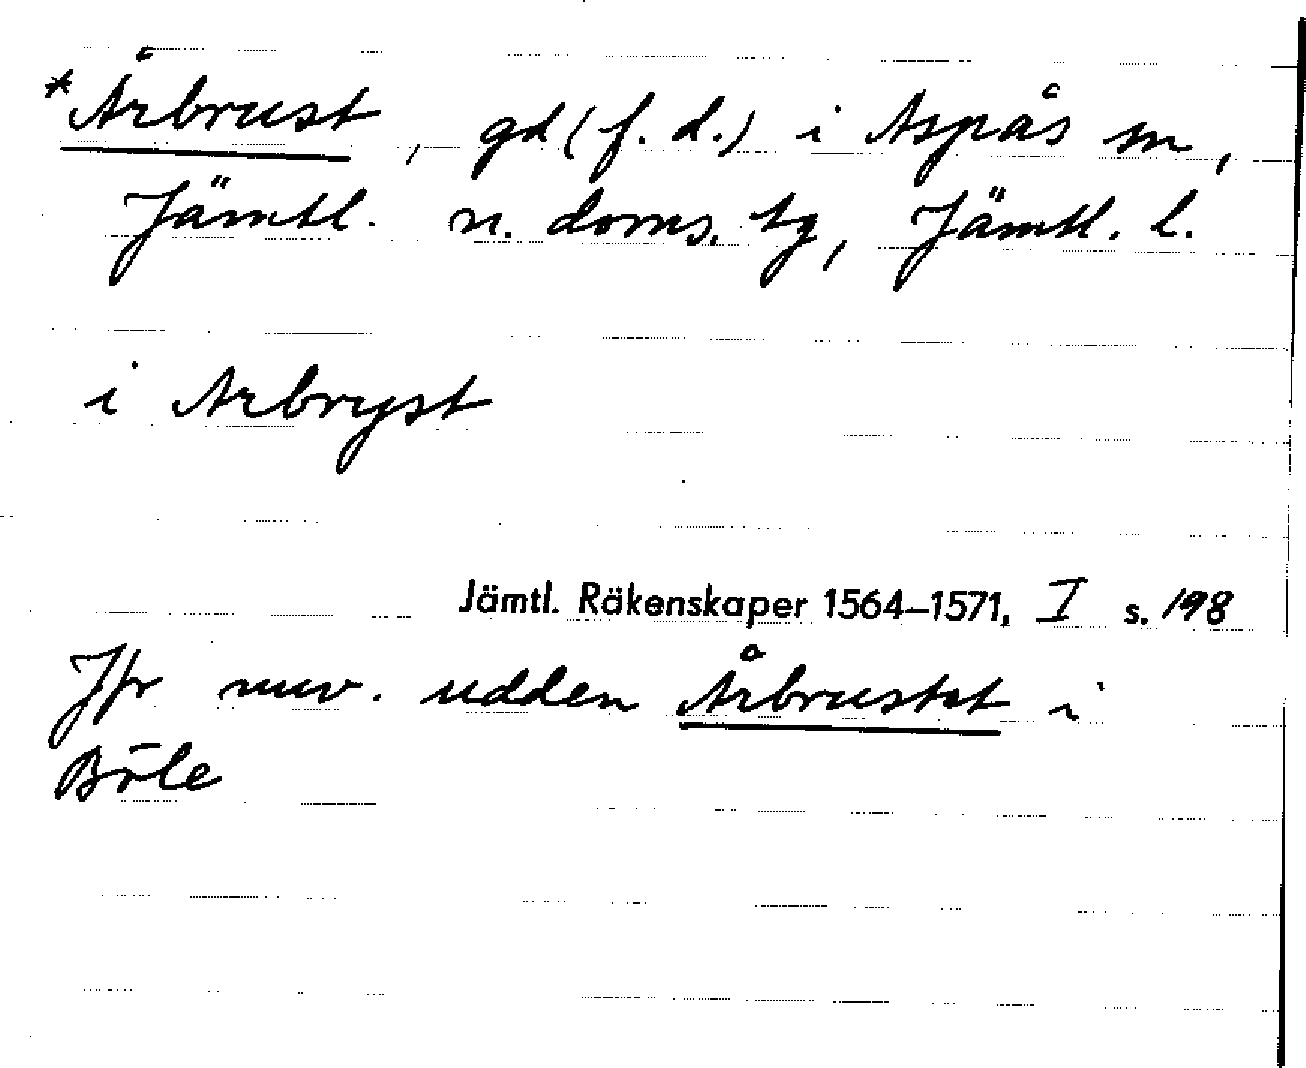 *Årbrust, gd (f. d.) i Aspås sn,
Jämtl. n. doms. tg, Jämtl. l.
i Arbryst
Jämtl. Räkenskaper 1564–1571, I s. 198
Jfr nuv. udden Årbrustet i
Böle